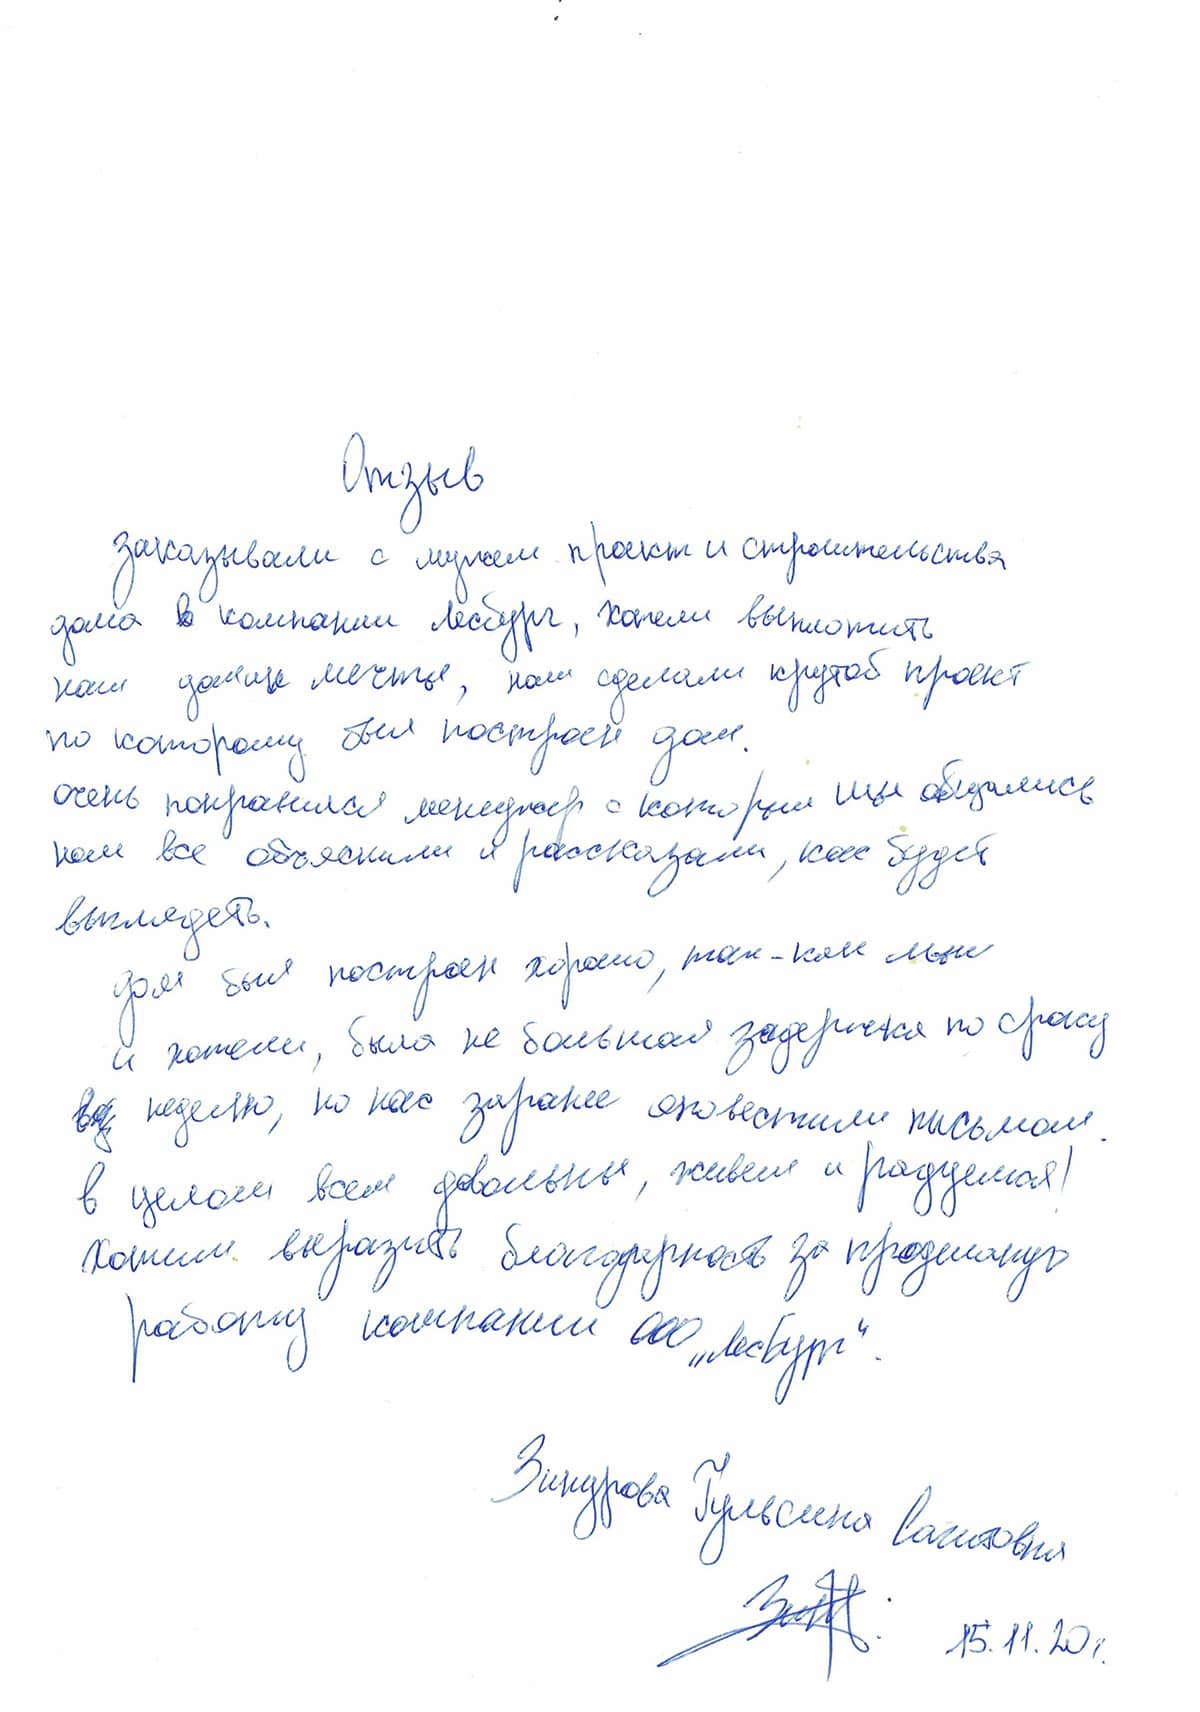 Отзыв
заказывали с мужем проект и строительства
дома в компании Лесбург, хотели выплотить
наш домик мечты, нам сделали крутой проект
по которому был построен дом.
очень понравился менеджер с которым мы общались
нам все объяснили и рассказали, как будет
выглядеть.
дом был построен хорошо, так-как мы
и хотели, была не большая задержка по сроку
неделю, но нас заранее оповестили письмом.
в целом всем довольны, живем и радуемся!
Хотим выразить благодарность за проделаную
работу компании ООО „Лесбург“.
Зинурова Гульсина Сагитовна
15.11.20г.